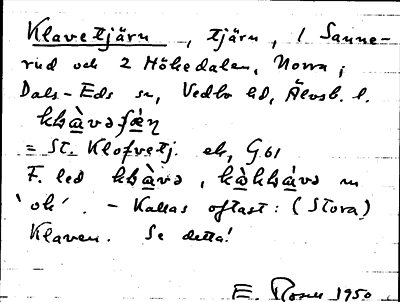 Klavetjärn, tjärn, 1 Sanne-
rud och 2 Hökedalen, Norra;
Dals-Eds sn, Vedbo hd, Älvsb. l.
= St. Klofvetj. ek, G.61
F. led
'ok'. - Kallas oftast: (Stora)
Klaven. Se detta!
E. Rosen 1950